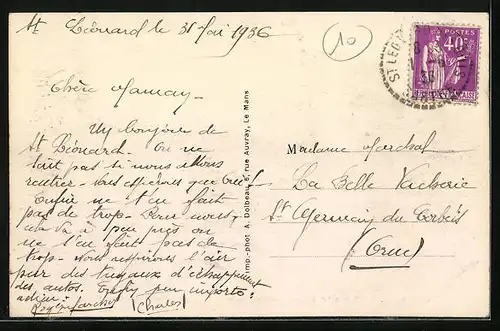 St Léonard le 31 Mai 1936
10
POSTES
40c
Chère Mamay -
Un bonjour de
St Léonard - On ne
sait pas si nous allons
rentrer - Nous espérons que
ne t'en fait
pas de trop - Pour nous,
cela va à peu près on
ne s'en fait pas de
trop - Nous respirons l'air
pur des tuyaux d'échappement
des autos. Enfin peu importe.
(Charles)
Imp.-phot A. Dolbeau, 5, rue Auvray, Le Mans
Madame Marchal
La Belle Vacherie
St Germain du Corbéis
(Orne)